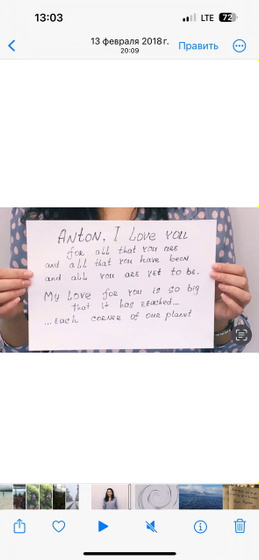 13:03
LTE 72
13 февраля 2018 г.
20:09
Править
ANTON, I LOVE YOU
for all that you are
and all that you have been
and all you are yet to be.
My love for you is so big
that it has reached...
...each corner of our planet